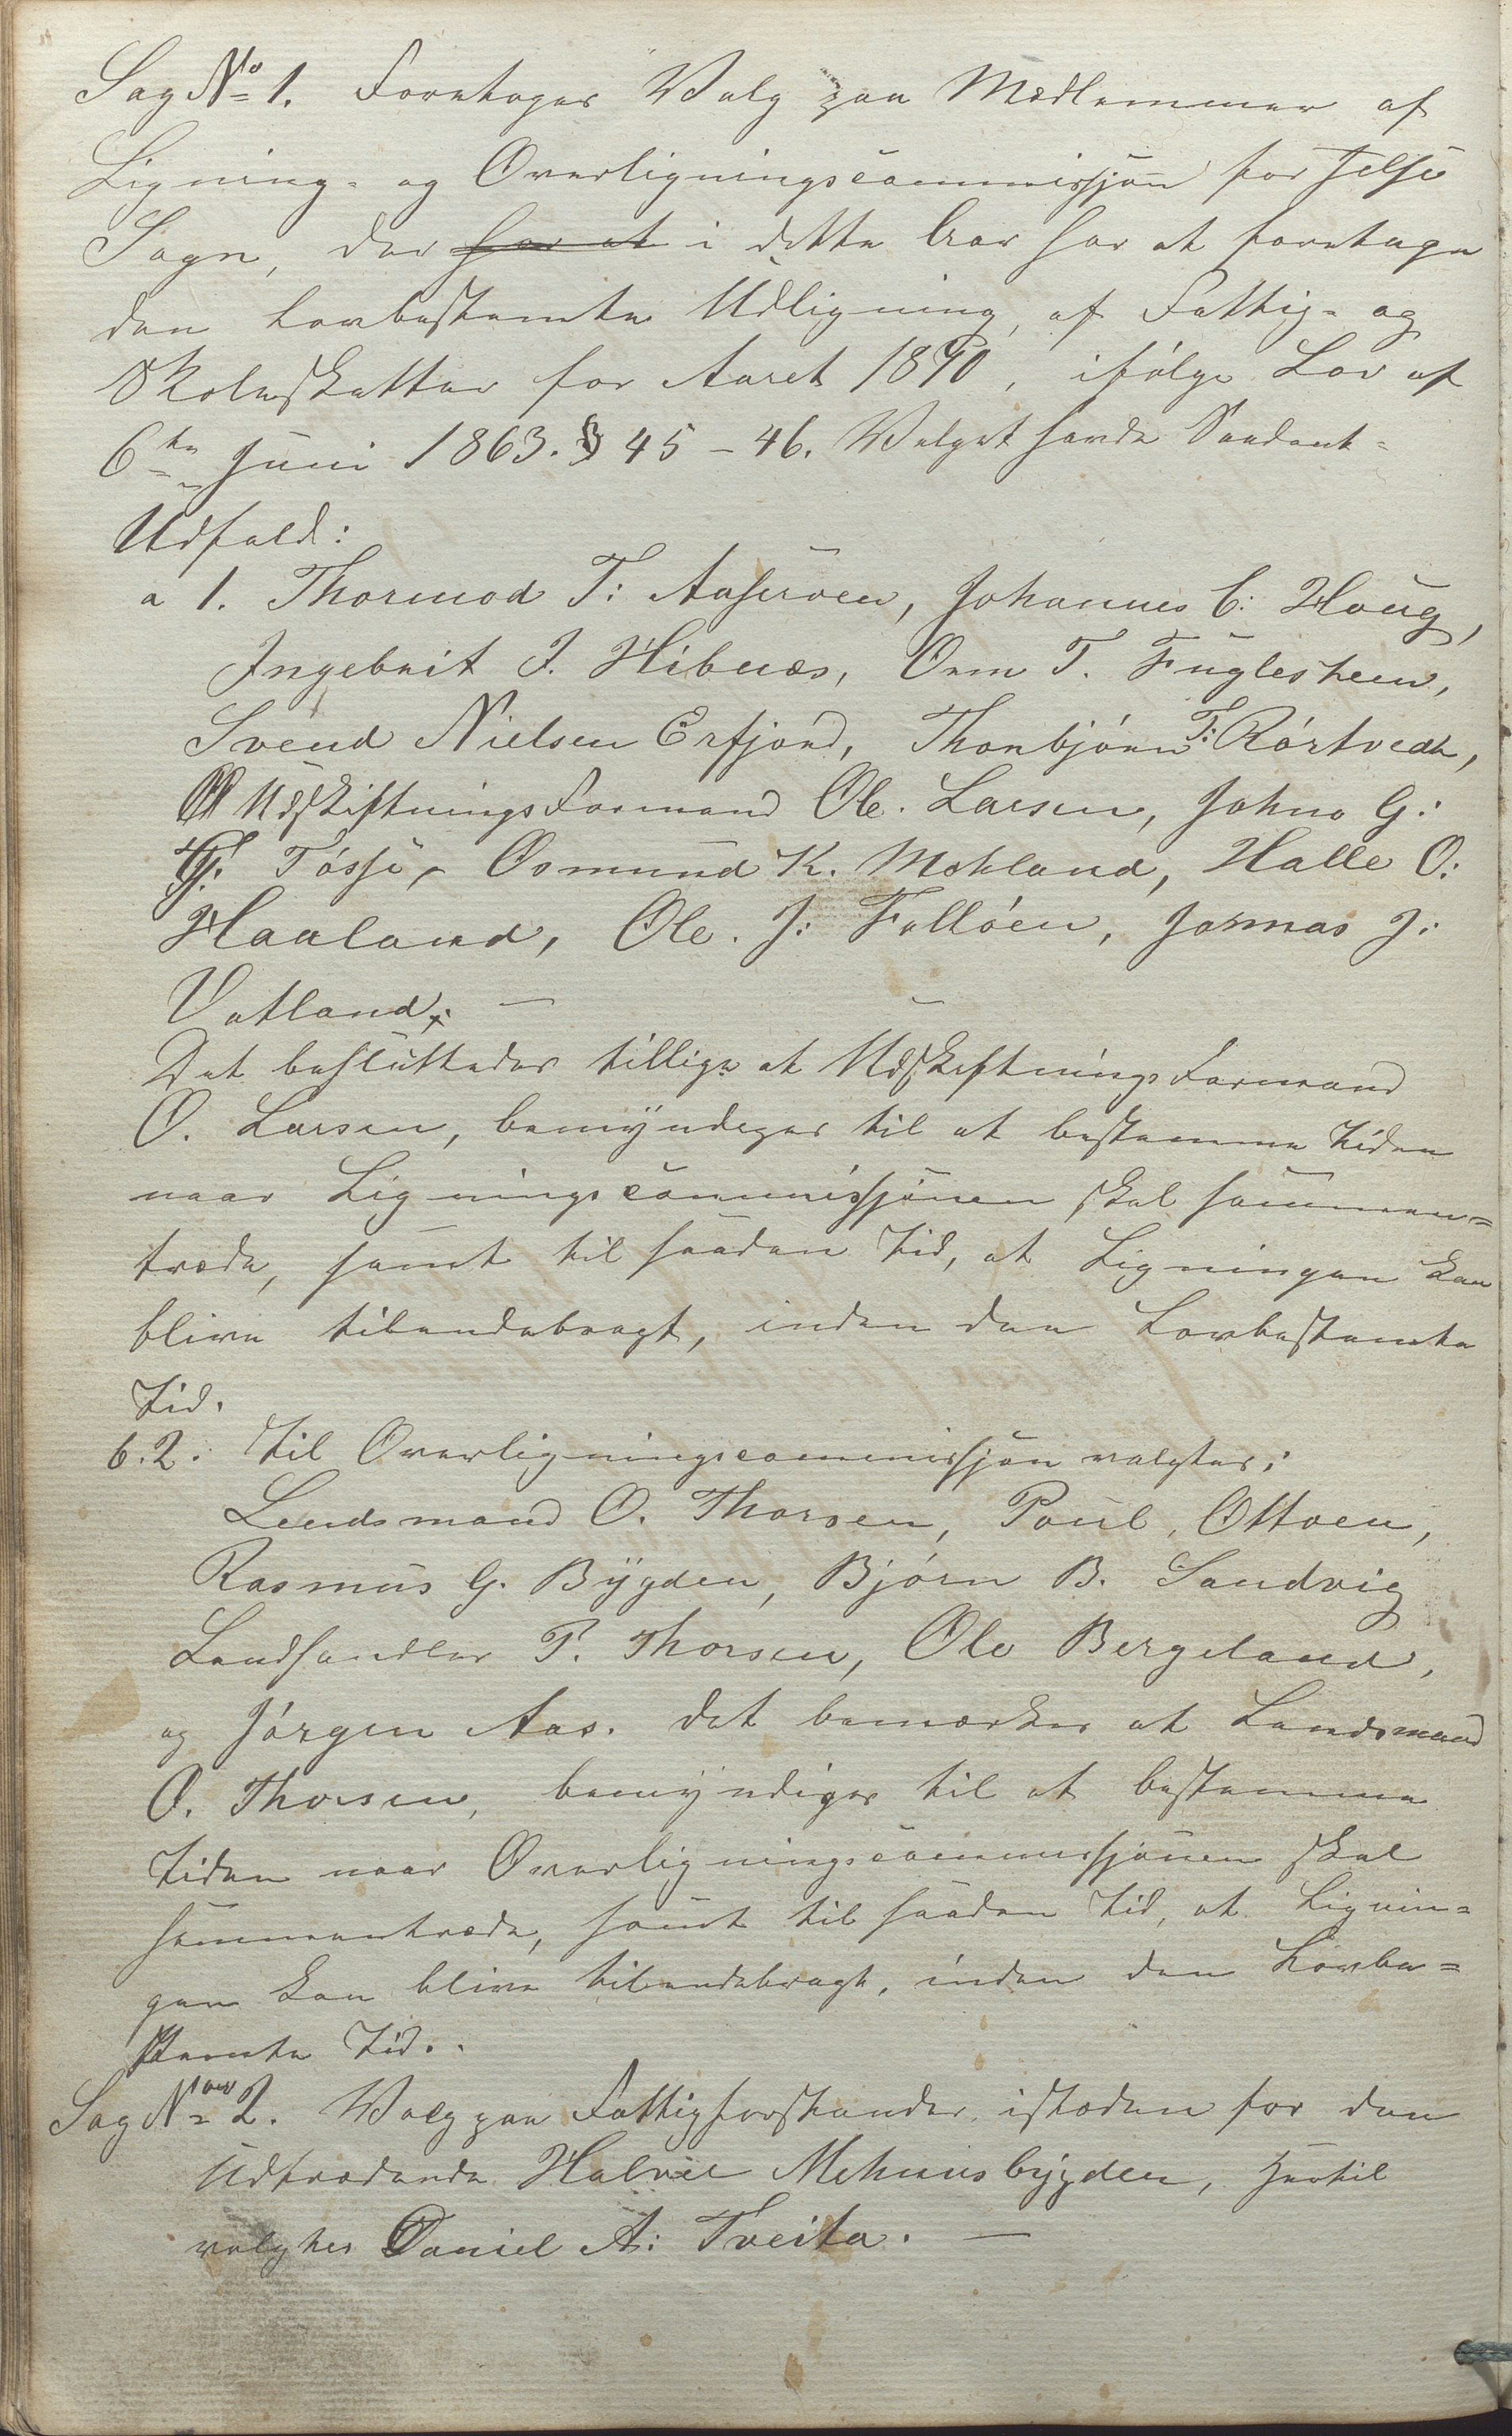 Sag No 1. Foretoges Valg paa Medlemmer af
Ligning- og Overligningscommissjon for Jelse
Sogn, der har at i dette Aar har at foretage
den Lovbestemte Udligning, af Fattig- og
Skoleskatter for Aaret 1870, ifølge Lov af
6te Juni 1863. § 45-46. Valget havde Saadant-
Udfald:
a 1. Thormod T: Johannes C: Houg,
Ingebrit J. Hibnæs, Orm T. Fuglesteen,
Svend Nielsen Erfjord, Thorbjørn T: Rørtvedt,
Udskiftningsformand Ole. Larsen, Johno G:
Tøsse, Osmund K. Mehland, Halle O:
Haaland, Ole. J: Folløen, Jonnas J:
Vatland. —
Det besluttedes tillige at Udskiftningsformand
O. Larsen, bemyndeges til at bestemme Tiden
naar Ligningscommissjonen skal sammen=
træde, samt til saadan Tid, at Ligningen kan
blive tilendebragt, inden den Lovbestemte
Tid.
b. 2. Til Overligningscommissjon valgtes:
Lendsmand O. Thorsen, Poul, Ottøen,
Rasmus G. Bygden, Bjørn B. Sandvig
Landhandler P. Thorsen, Ole Bergeland,
og Jørgen Aas. det bemærkes at Lendsmand
O. Thorsen, bemyndiges til at bestemme
Tiden naar Overligningscommissjonen skal
sammentræde, samt til saadan Tid, at Lignin=
gen kan blive tilendebragt, inden den Lovbe=
stemte Tid..
Sag No 2. Valg paa Fattigforstander istæden for den
Udtrædende Halvel Mehuusbygden, hertil
valgtes Daniel A: Tveita. —